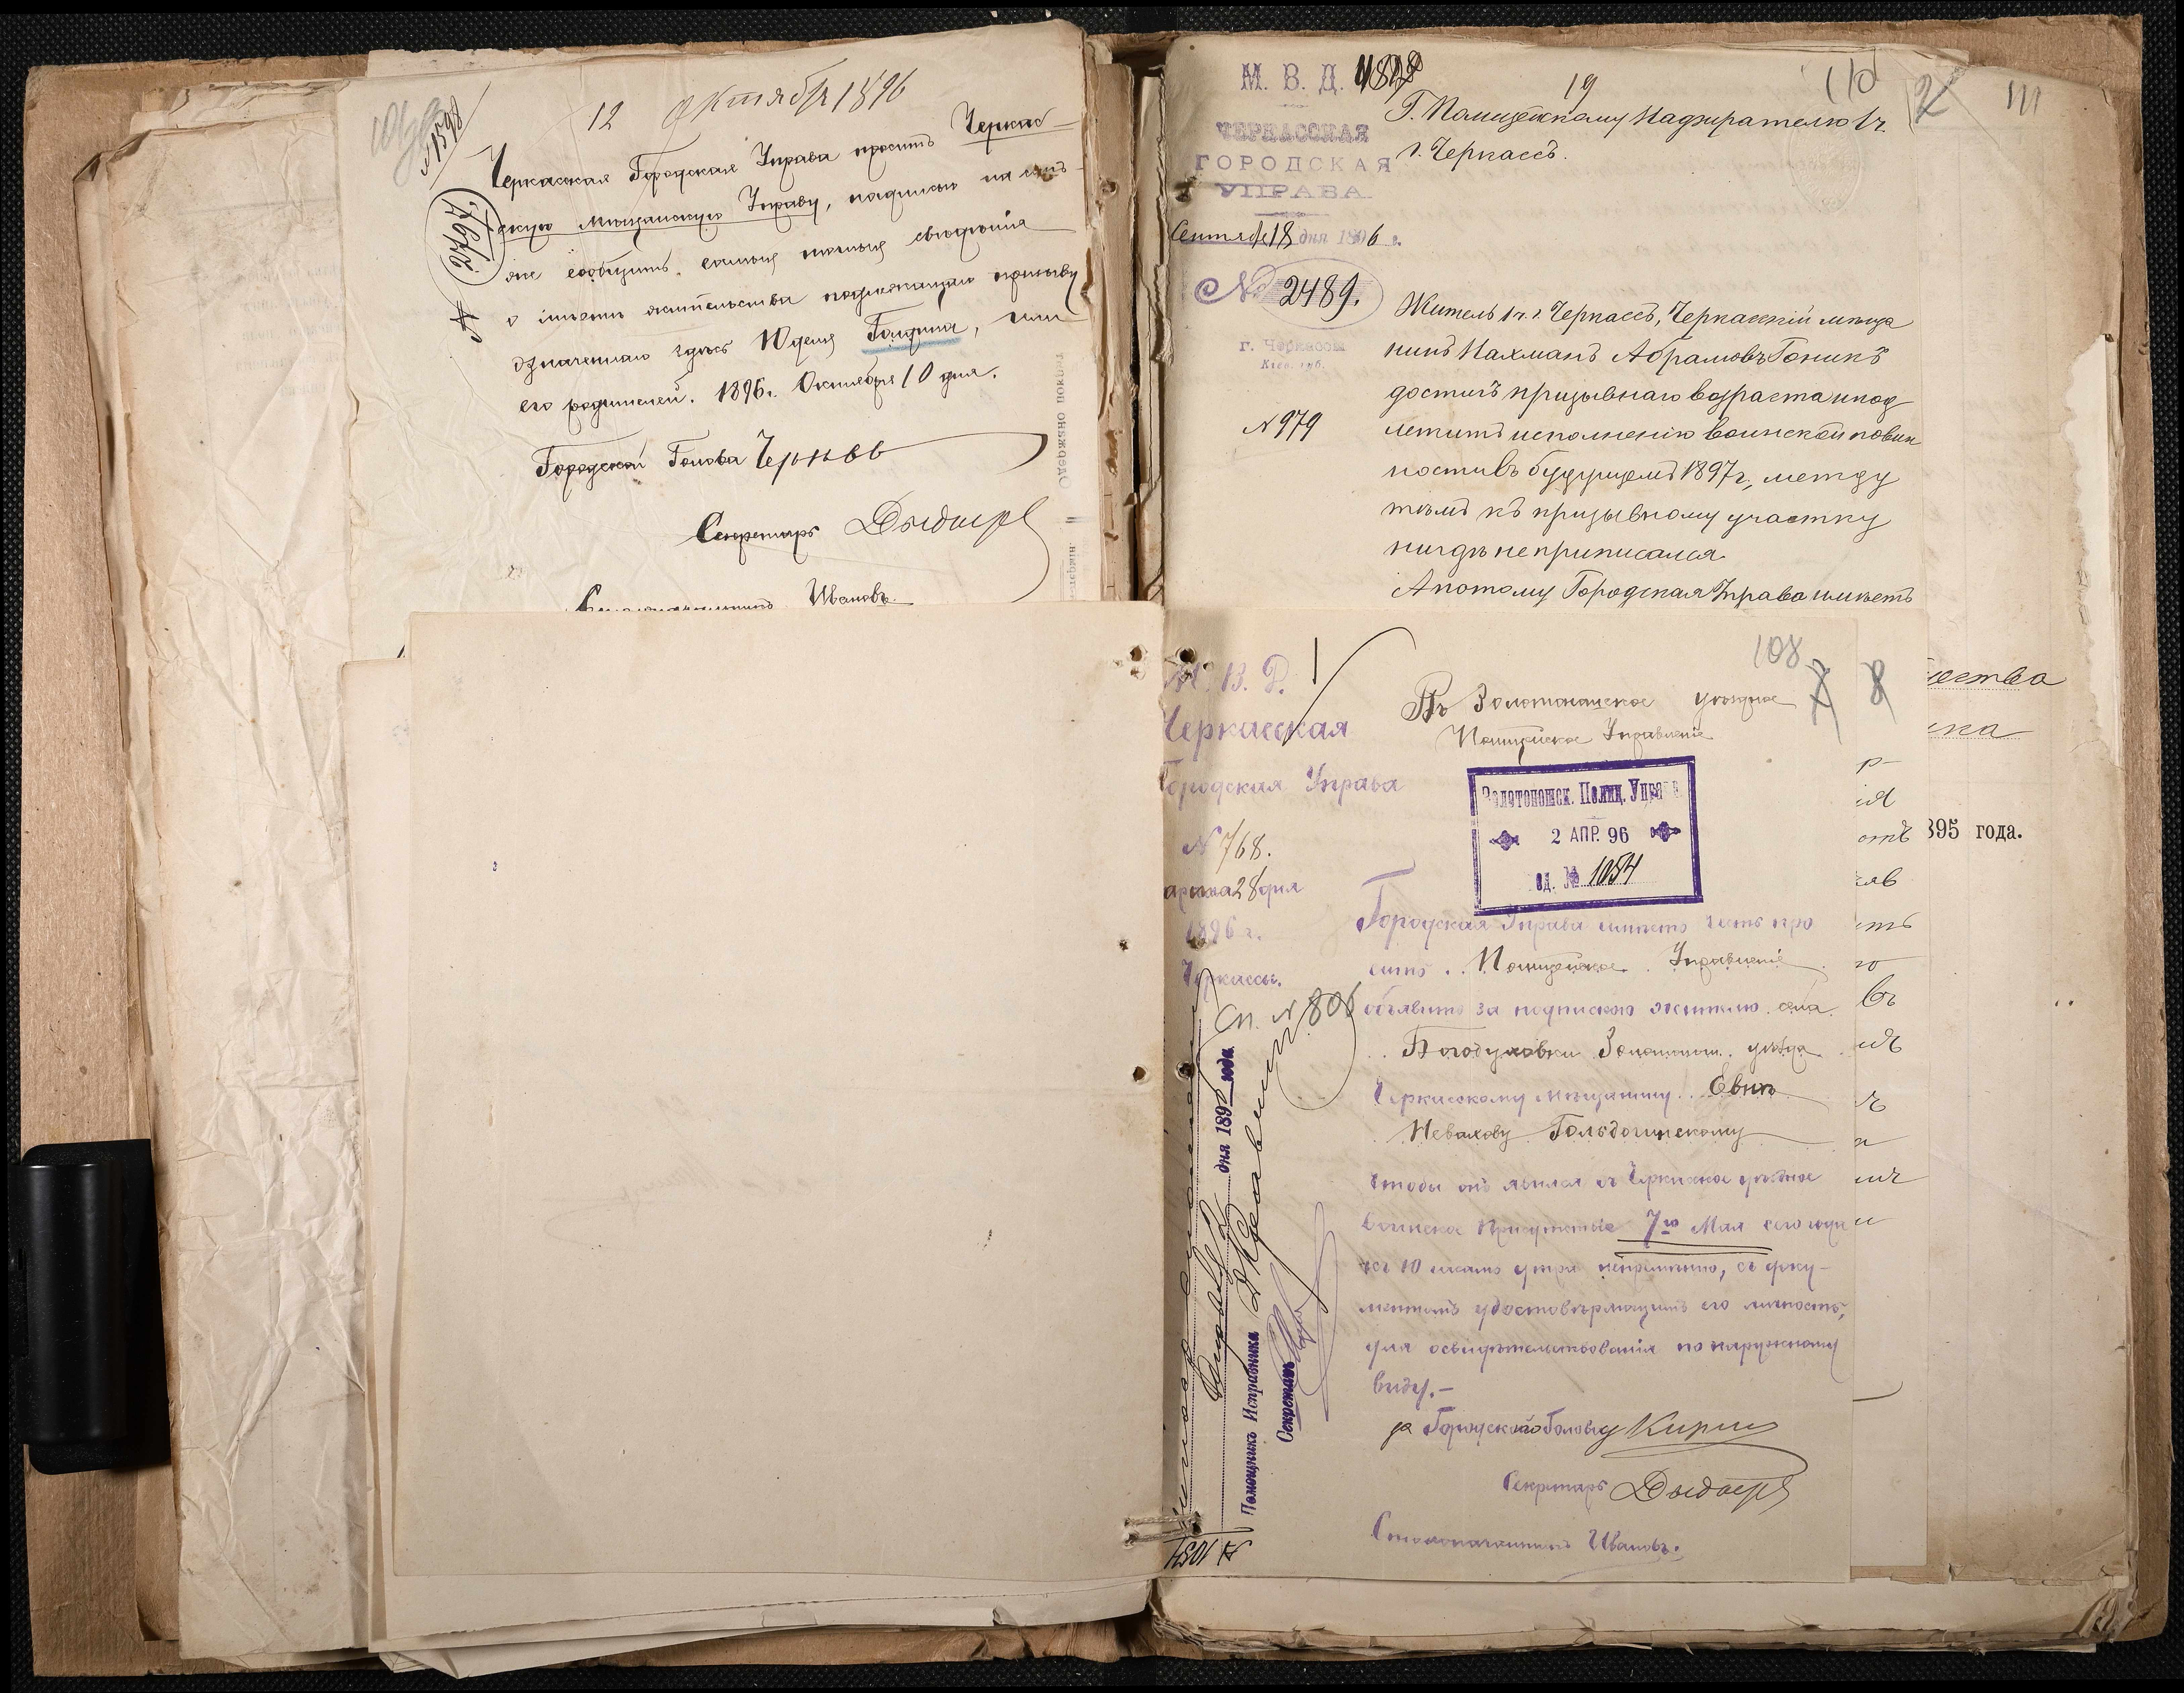 12 Октября 1896
№ 1598
2797
Черкасская Городская Управа проситъ Черкас-
скую Мѣщанскую Управу, надписью на семъ-
же сообщить самыя точныя свѣдѣнія
о мѣстѣ жительства подлежащаго призыву
означеннаго здѣсь Юделя Голдина, или
его родителей. 1896 г. Октября 10 дня.
Городской Голова
Секретарь
Столоначальникъ Ивановъ.
М. В. Д.
ЧЕРКАССКАЯ
ГОРОДСКАЯ
УПРАВА
Сентября 18 дня 1896 г.
№ 2489.
г. Черкассы
Кіев. губ.
№ 979
19
110
Г. Полицейскому Надзирателю 1 ч.
г. Черкассъ.
Житель 1 ч. г. Черкассъ, Черкасскій мѣща
нинъ Нахманъ Абрамовъ Гоникъ
достигъ призывнаго возраста и под
лежитъ исполненію воинской повин
ности въ будущемъ 1897 г., между
тѣмъ къ призывному участку
нигдѣ не приписался.
А потому Городская Управа имѣетъ
111
895 года.
М. В. Д.
Черкасская
Городская Управа
№ 768.
марта 28 дня
1896 г.
Черкассы.
108
Въ Золотоношское уѣздное
Полицейское Управленіе
Золотоношск. Полиц. Управ
2 АПР. 96
№ 1054
Городская Управа имѣетъ честь про
ситъ Полицейское Управленіе
объявить за подпискою жителю села
Богодуховки Золотонош. уѣзда
Черкасскому мѣщанину Евик
Невахову Гольдогинскому
чтобы онъ явился въ Черкасское уѣздное
воинское Присутствіе 7го Мая сего года
въ 10 часовъ утра непремѣнно, съ доку-
ментомъ удостовѣряющимъ его личность,
для освидѣтельствованія по наружному
виду.-
за Городского Голову
Секретарь
Столоначальникъ Ивановъ.
Сп. № 806
дня 189 года
Помощникъ Исправника
Секретарь
№ 1054